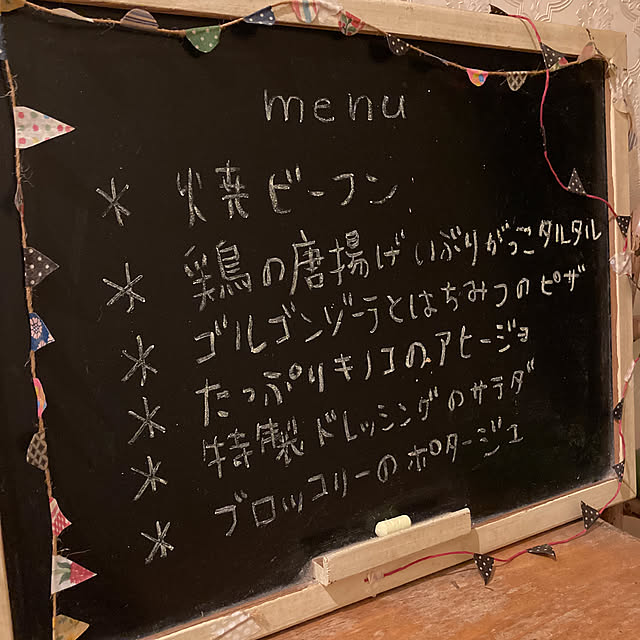 menu
* 焼ビーフン
* 鶏の唐揚げいぶりがっこタルタル
* ゴルゴンゾーラとはちみつのピザ
* たっぷりキノコのアヒージョ
* 特製ドレッシングのサラダ
* ブロッコリーのポタージュ